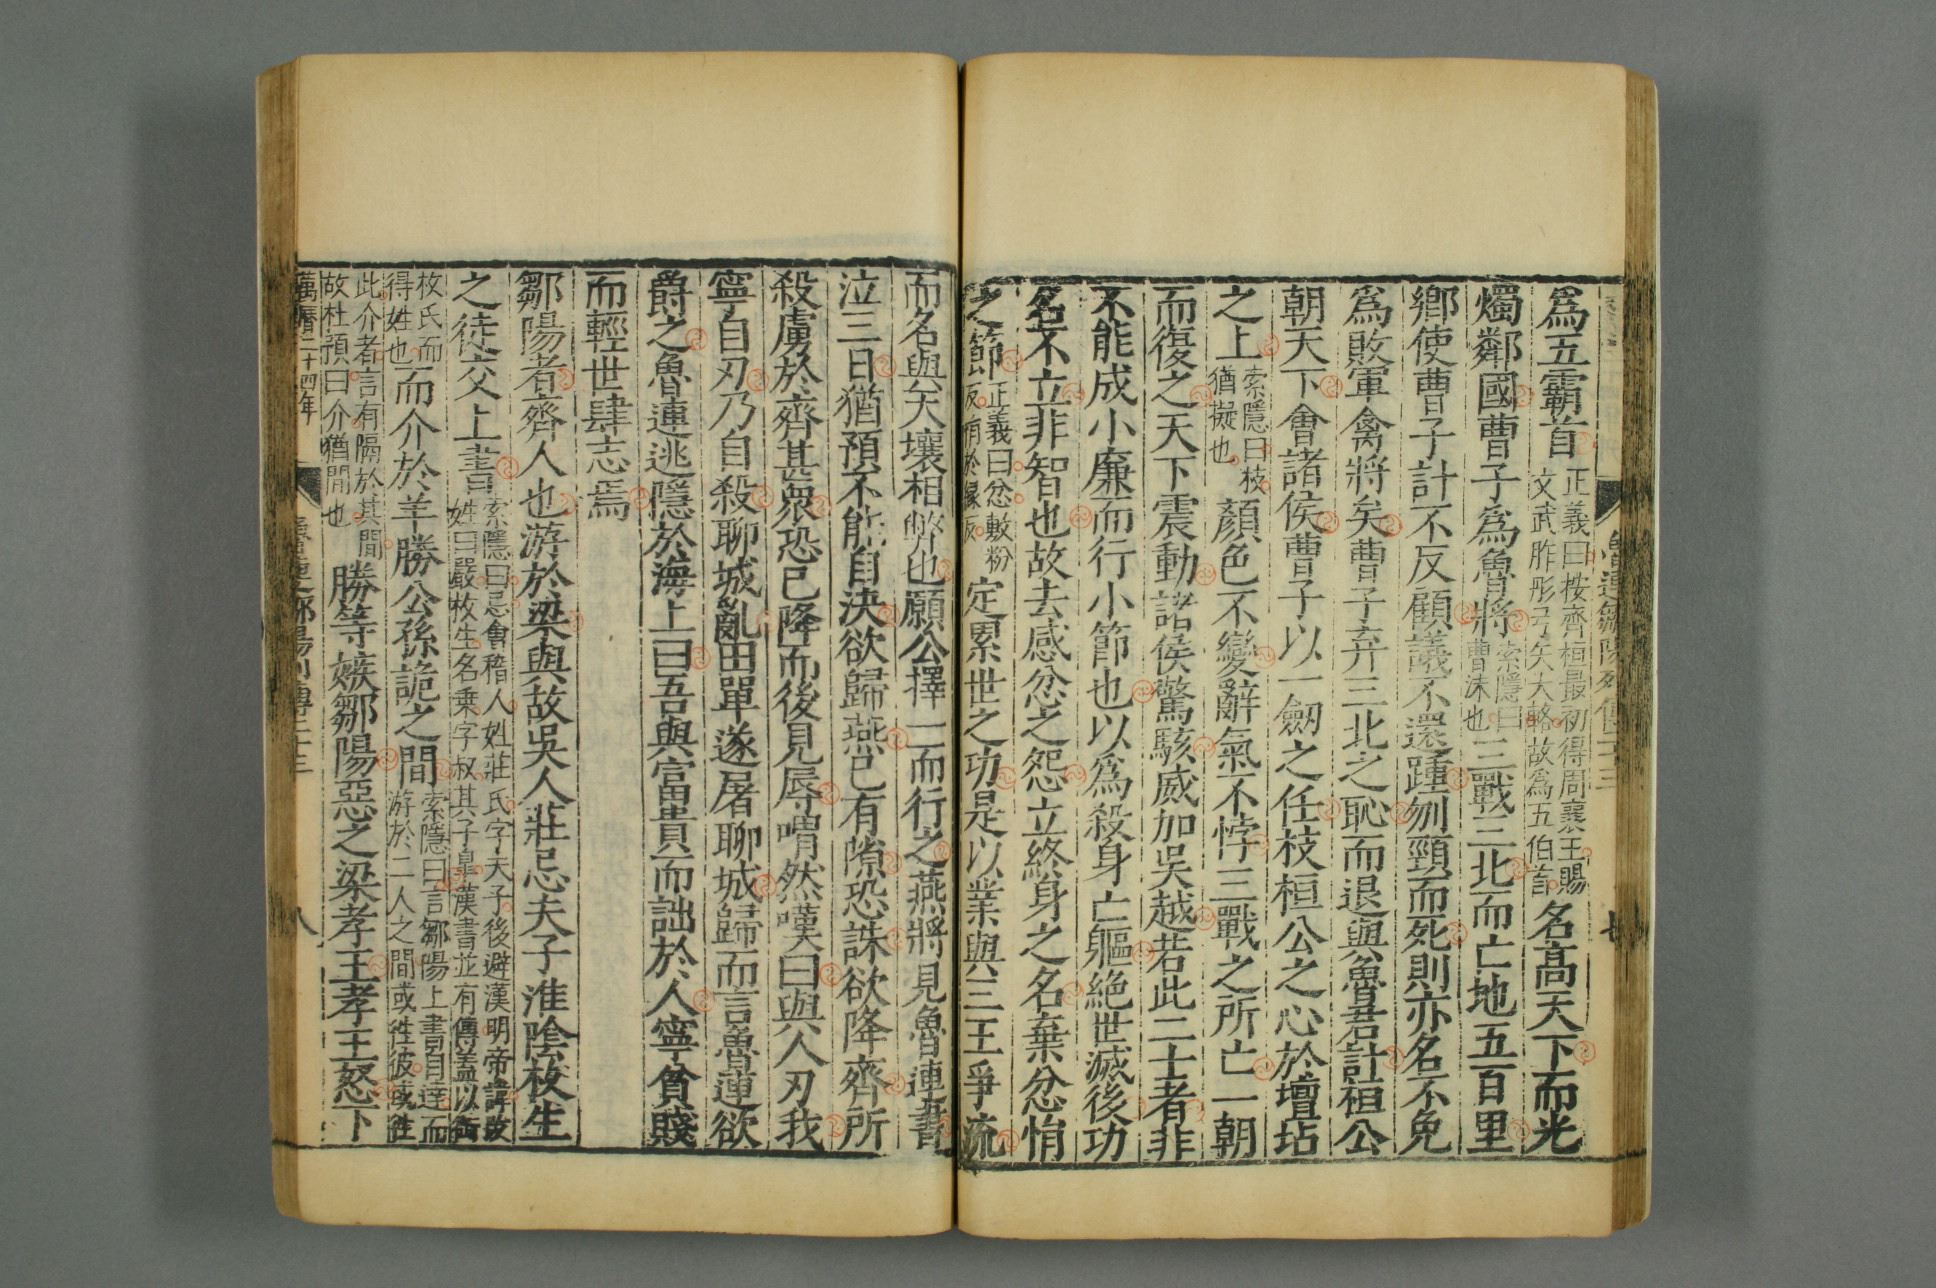 魯連鄒陽列傳二十三
七
爲五霸首正義曰按齊桓最初得周襄王賜文武胙彤弓矢大輅故爲五伯首名高天下而光
燭鄰國曹子爲魯將索隱曰曹沬也三戰三北而亡地五百里
鄉使曹子計不反顧議不還踵刎頸而死則亦名不免
爲敗軍禽將矣曹子弃三北之恥而退與魯君計桓公
朝天下會諸侯曹子以一劒之任枝桓公之心於壇坫
之上索隱曰枝猶擬也顏色不變辭氣不悖三戰之所亡一朝
而復之天下震動諸侯驚駭威加吳越若此二士者非
不能成小廉而行小節也以爲殺身亡軀絕世滅後功
名不立非智也故去感忿之怨立終身之名棄忿悁
之節正義曰忿敷粉反悁於緣反定累世之功是以業與三王爭流
而名與天壤相弊也願公擇一而行之燕將見魯連書
泣三日猶預不能自決欲歸燕已有隙恐誅欲降齊所
殺虜於齊甚衆恐已降而後見辱喟然嘆曰與人刃我
寧自刃乃自殺聊城亂田單遂屠聊城歸而言魯連欲
爵之魯連逃隱於海上曰吾與富貴而詘於人寧貧賤
而輕世肆志焉
鄒陽者齊人也游於梁與故吳人莊忌夫子淮陰枚生
之徒交上書索隱曰忌會稽人姓莊氏字夫子後避漢明帝諱改姓曰嚴枚生名乗字叔其子皐漢書並有傳盖以衘
枚氏而得姓也而介於羊勝公孫詭之間索隱曰言鄒陽上書自達而游於二人之間或往彼或往
此介者言有隔於其間故杜預曰介猶間也勝等嫉鄒陽惡之梁孝王孝王怒下
萬曆二十四年
魯連鄒陽列傳二十三
八